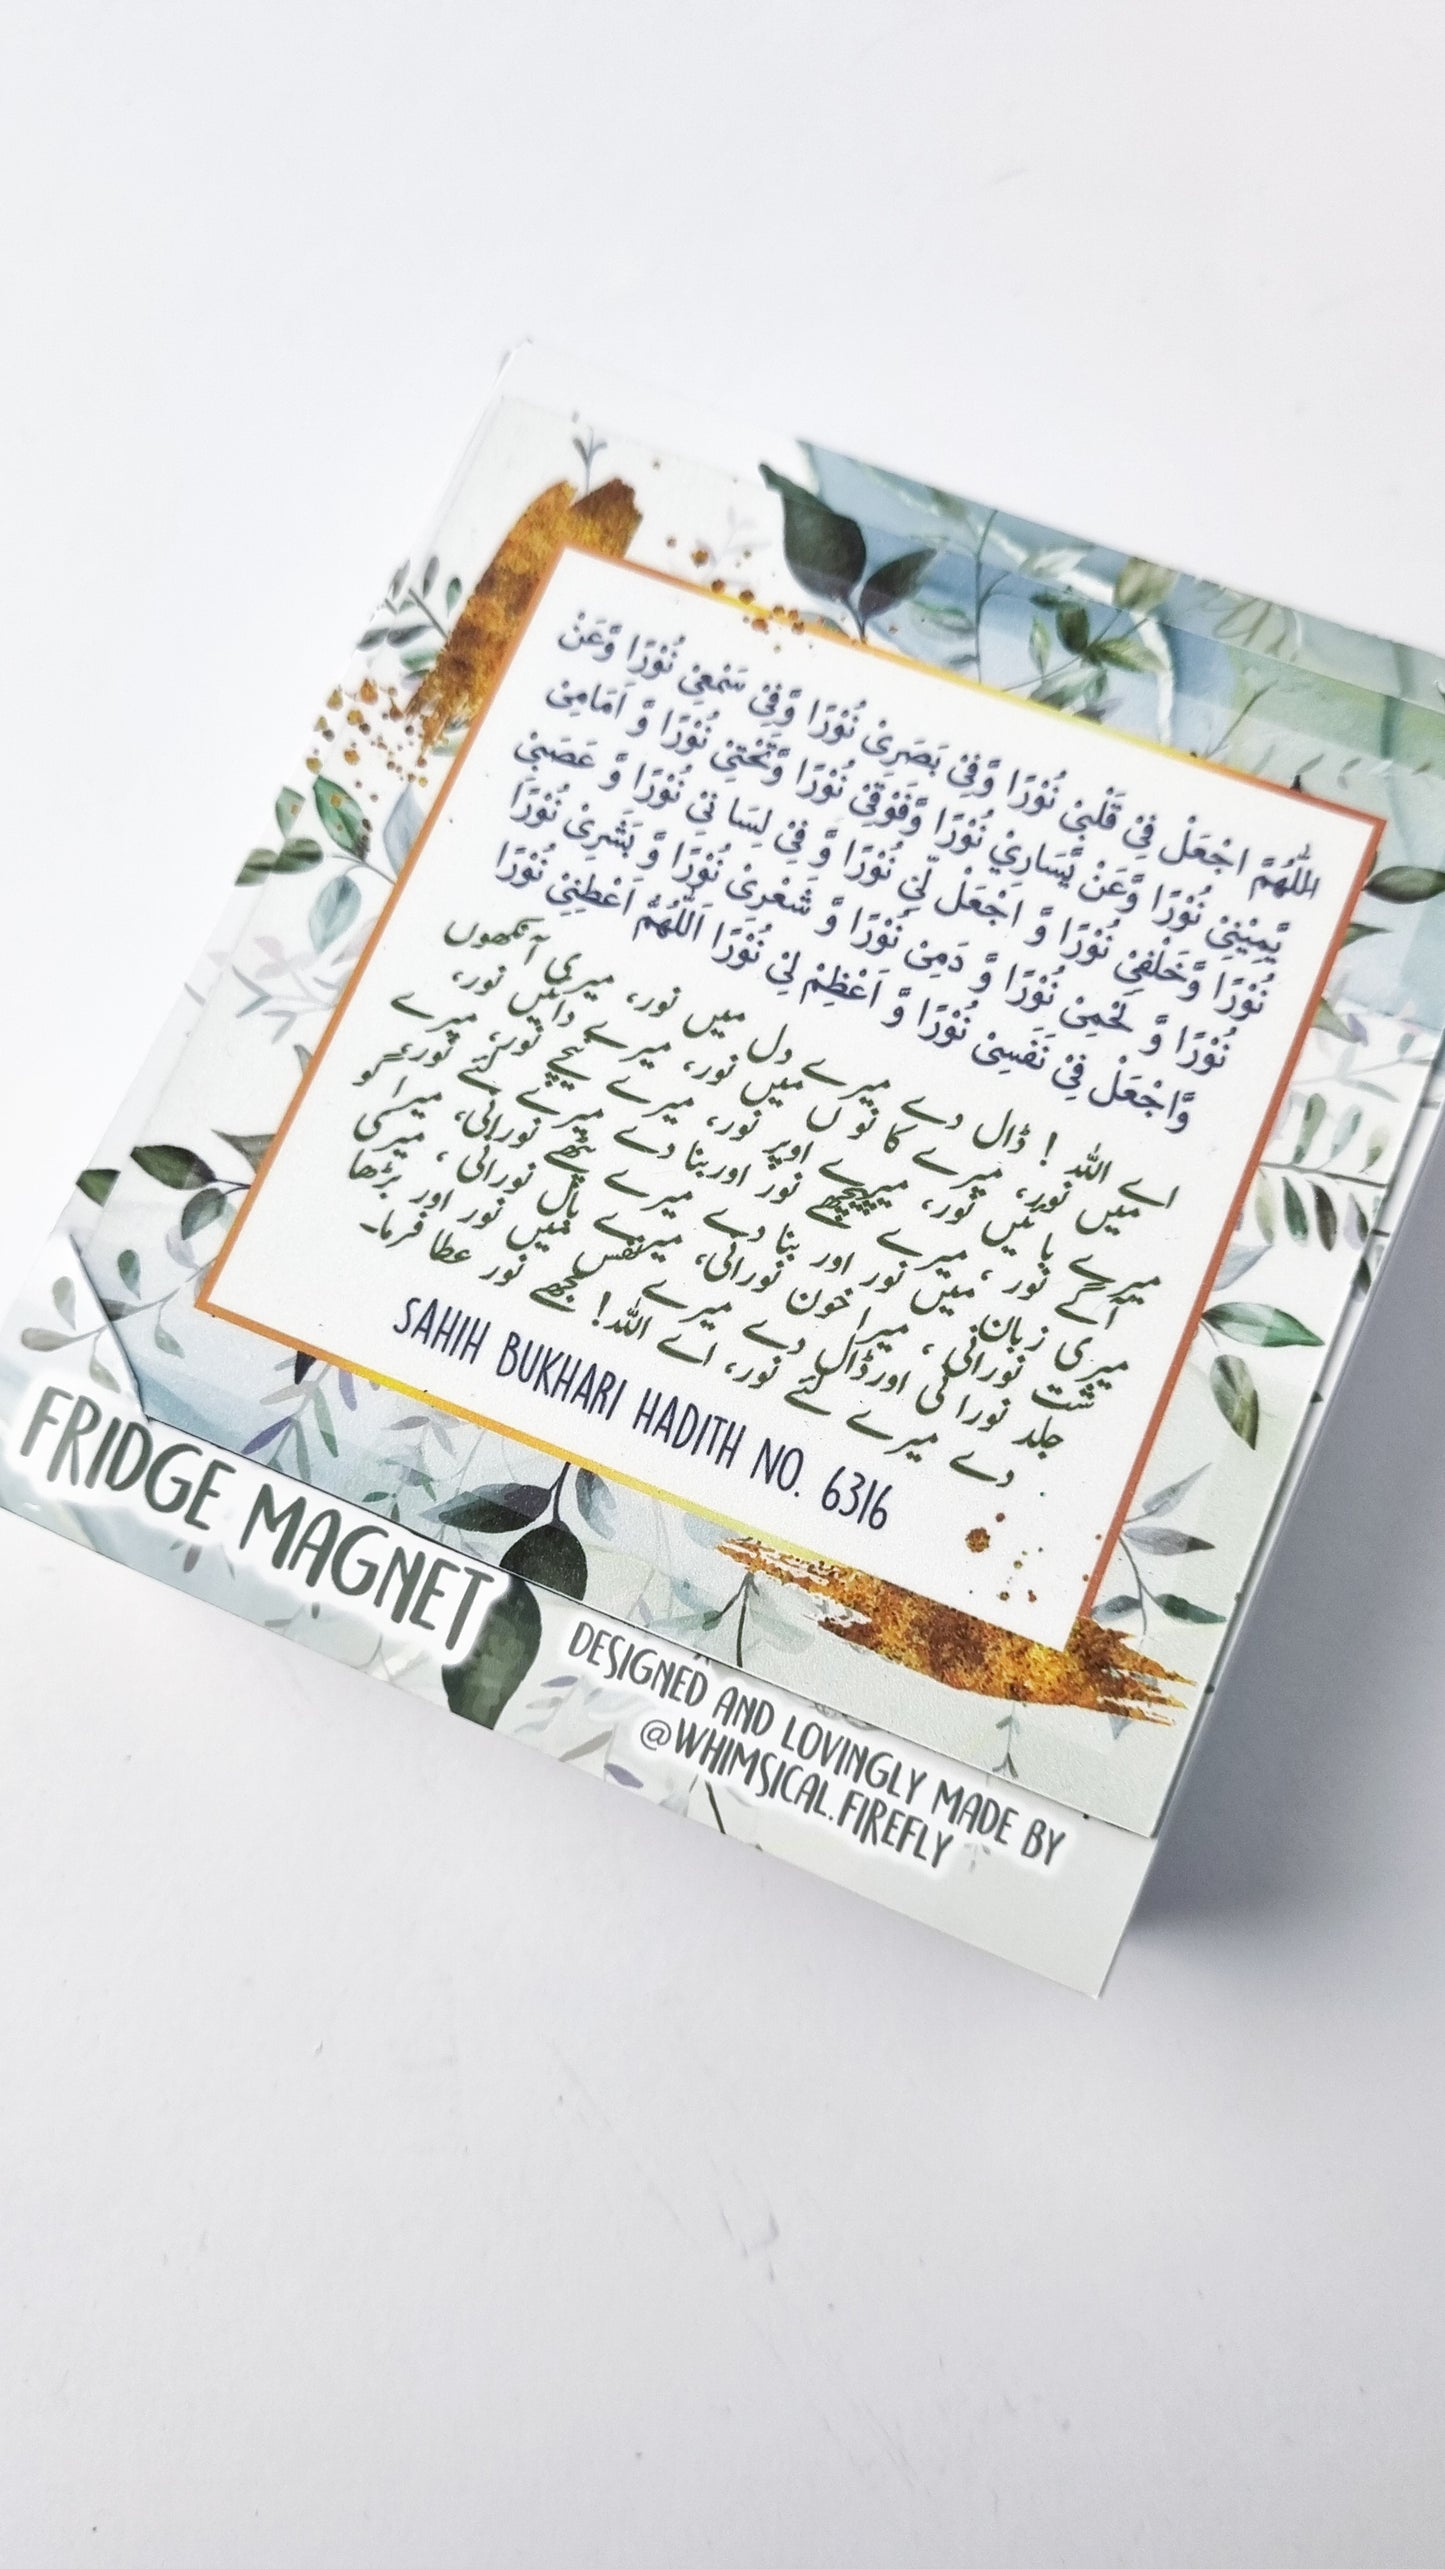 اللّٰهُمَّ اجْعَلْ فِيْ قَلْبِيْ نُوْرًا وَّفِيْ بَصَرِيْ نُوْرًا وَّفِيْ سَمْعِيْ نُوْرًا وَّعَنْ
يَّمِيْنِيْ نُوْرًا وَّعَنْ يَّسَارِيْ نُوْرًا وَّفَوْقِيْ نُوْرًا وَّتَحْتِيْ نُوْرًا وَّ اَمَامِيْ
نُوْرًا وَّخَلْفِيْ نُوْرًا وَّ اجْعَلْ لِّيْ نُوْرًا وَّ فِيْ لِسَا نِيْ نُوْرًا وَّ عَصَبِيْ
نُوْرًا وَّ لَحْمِيْ نُوْرًا وَّ دَمِيْ نُوْرًا وَّ شَعْرِيْ نُوْرًا وَّ بَشَرِيْ نُوْرًا
وَّاجْعَلْ فِيْ نَفَسِيْ نُوْرًا وَّ اَعْظِمْ لِيْ نُوْرًا اَللّٰهُمَّ اَعْطِنِيْ نُوْرًا
اے اللہ ! ڈال دے میرے دل میں نور، میری آنکھوں
میں نور، میرے کا نو ں میں نور، میرے دائیں نور،
میرے با ئیں نور، میرے اوپر نور، میرے نیچے نور، میرے
آگے نور ، میرے پیچھے نور اوربنا دے میرے لئے نور،
میری زبان میں نور اور بنا دے میرے پٹھے نورانی، میرا گو
شت نورانی ، میرا خون نورانی، میرے بال نورانی ، میری
جلد نورا نی اورڈال دے میرے نفس میں نور اور بڑھا
دے میرے لئے نور، اے اللہ! مجھے نور عطا فرما۔
SAHIH BUKHARI HADITH NO. 6316
FRIDGE MAGNET
DESIGNED AND LOVINGLY MADE BY
@WHIMSICAL.FIREFLY